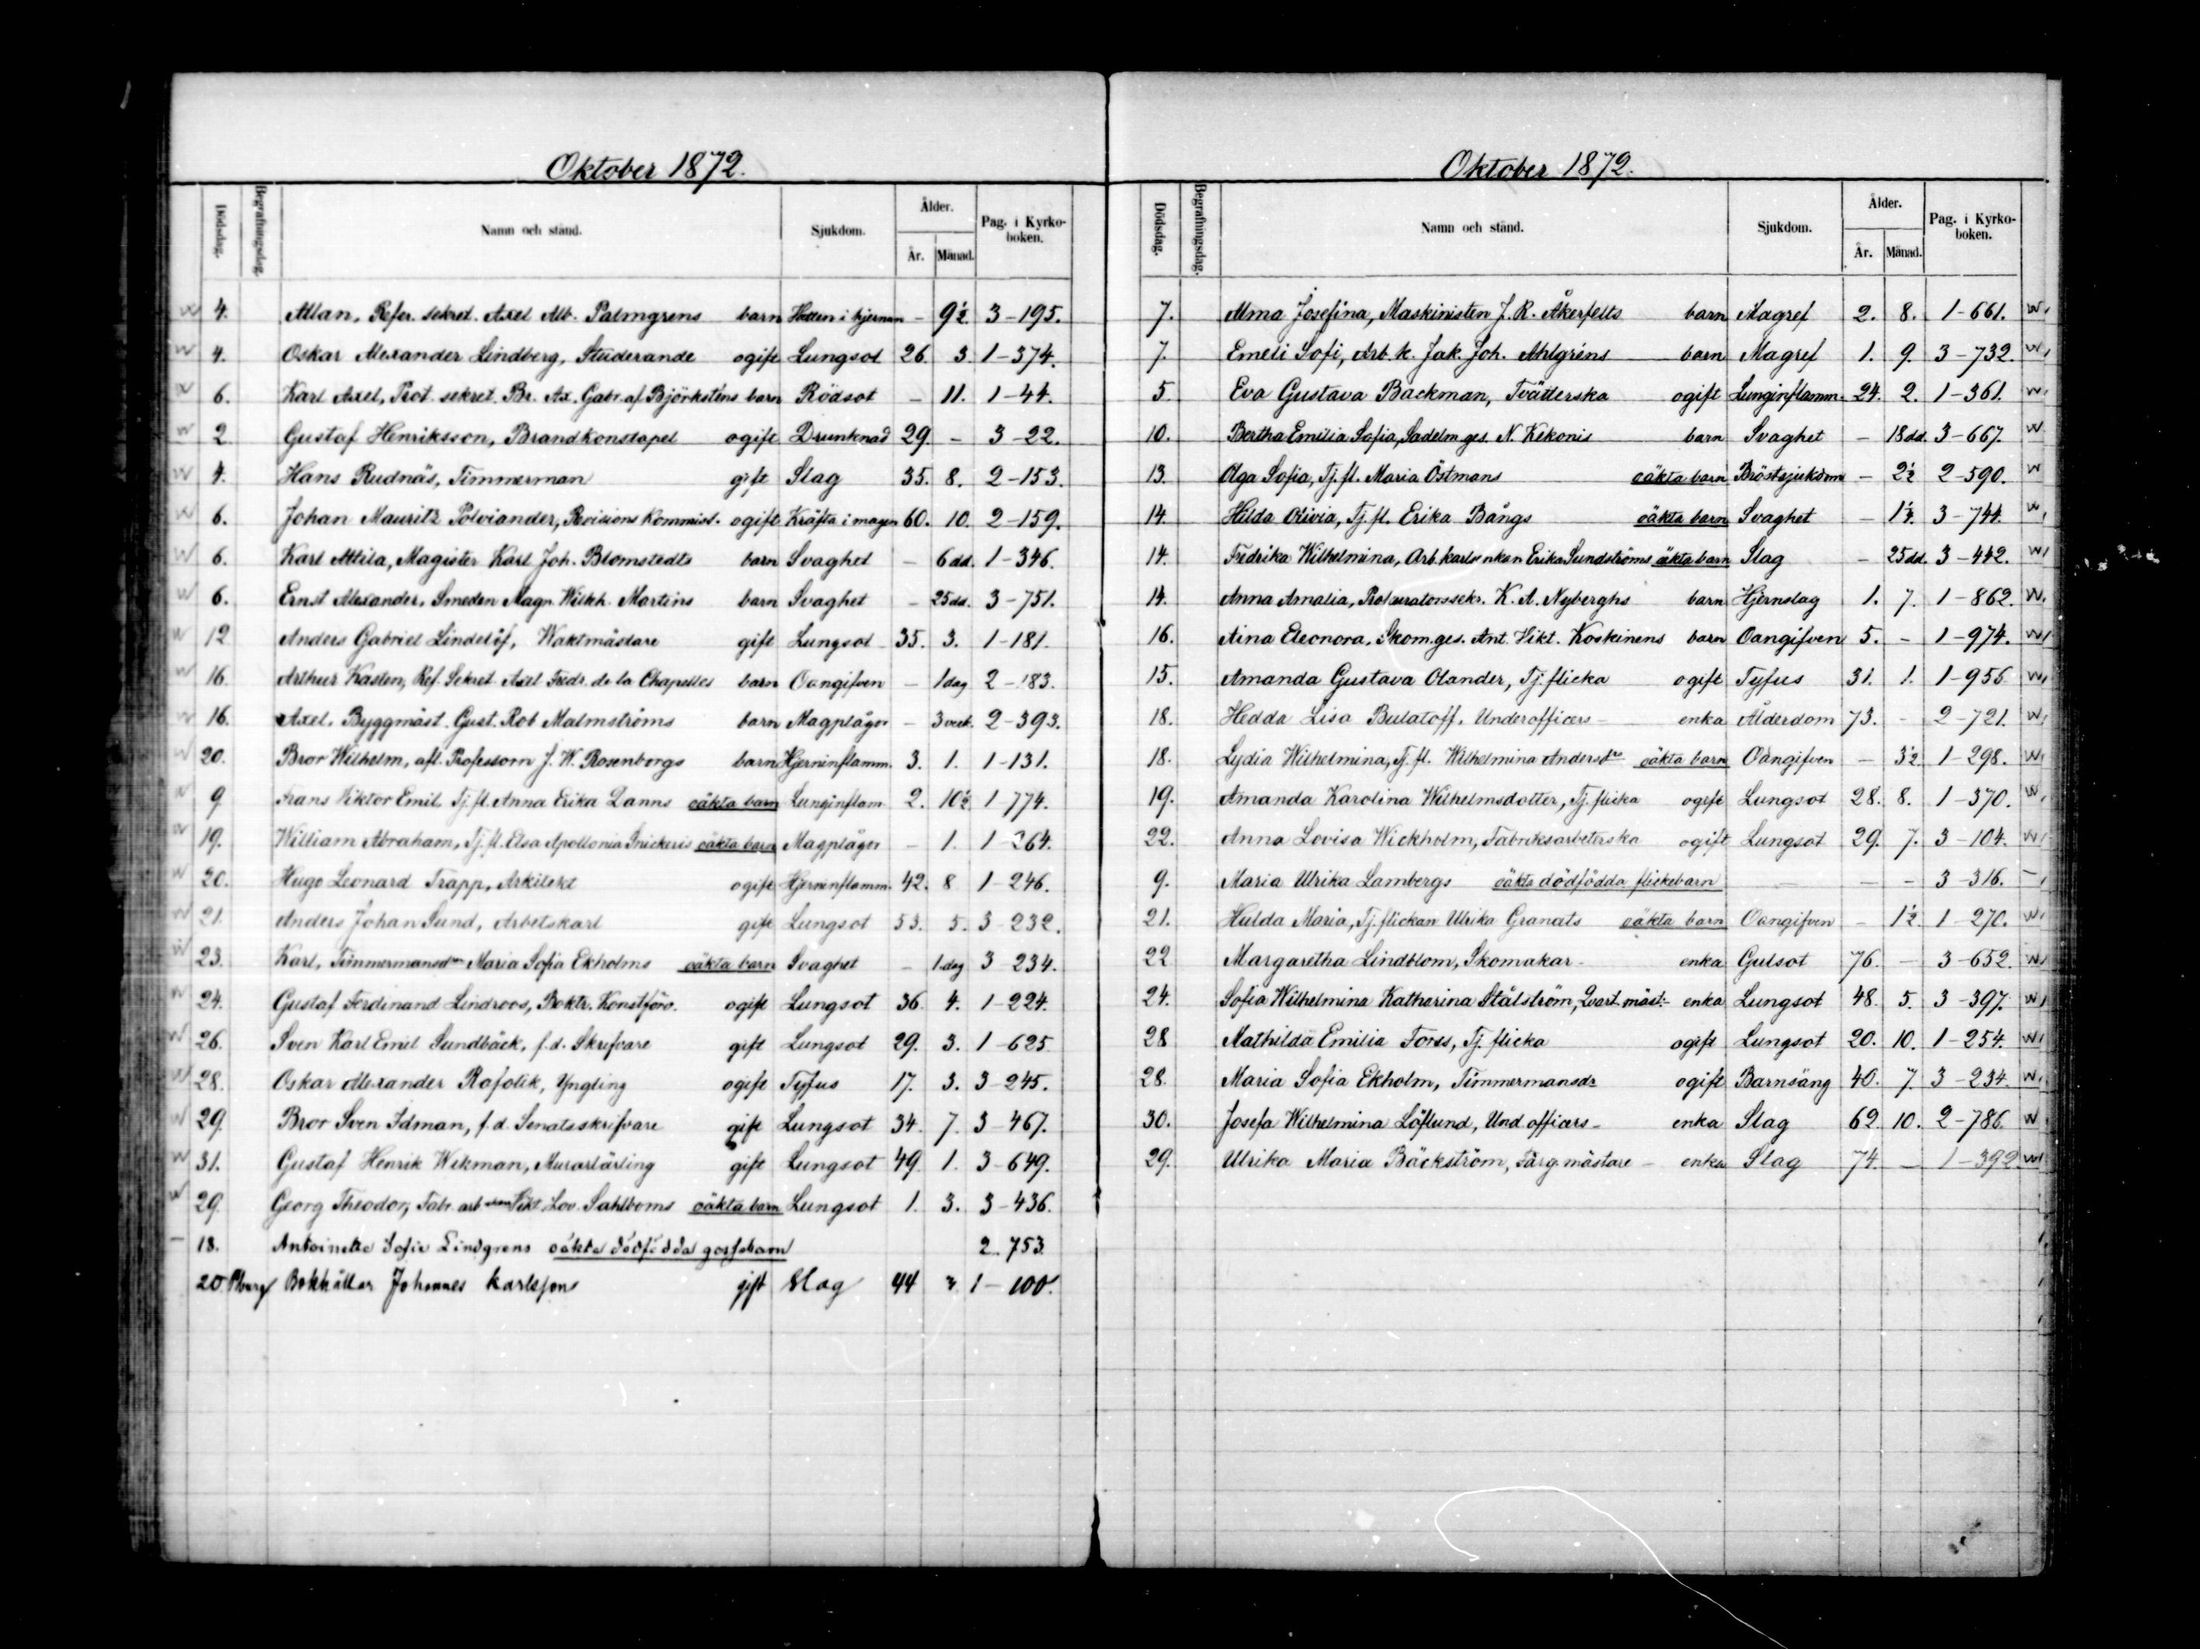 Oktober 1872.
Dödsdag. Begrafningsdag. Namn och stånd. Sjukdom. Ålder. År. Månad. Pag. i Kyrkoboken.
4. Allan, Refer. sekret. Axel Alb. Palmgrens barn Hetten i hjernan - 9½ 3-195.
4. Oskar Alexander Lindberg, Studerande ogift Lungsot 26. 3. 1-374.
6. Karl Axel, Prot. sekret. Br. Ax. Gabr. af Björksténs barn Rödsot - 11. 1-44.
2 Gustaf Henriksson, Brandkonstapel ogift Drunknad 29. - 3-22.
4. Hans Rudnäs, Timmerman gift Slag 35. 8. 2-153.
6. Johan Mauritz Polviander, Revisions Kommiss. ogift Kräfta i magen 60. 10. 2-159.
6. Karl Attila, Magister Karl Joh. Blomstedts barn Svaghet - 6 dd. 1-346.
6. Ernst Alexander, Smeden Magn. Wilhh. Martins barn Svaghet - 25 dd. 3-751.
12 Anders Gabriel Lindelöf, Waktmästare gift Lungsot 35. 3. 1-181.
16. Arthur Kasten, Ref. Sekret. Axel Fredr. de la Chapelles barn Oangifven - 1 dag 2-183.
16. Axel, Byggmäst. Gust. Rob Malmströms barn Magplågor - 3 veck. 2-393.
20. Bror Wilhelm, afl. Professorn J. W. Rosenborgs barn Hjerninflamm. 3. 1. 1-131.
9 Frans Viktor Emil Tj. fl. Anna Erika Danns oäkta barn Lunginflam 2. 10½ 1-774.
19. William Abraham, Tj. fl. Elsa Apollonia Snickeris oäkta barn Magplågor - 1. 1-264.
20. Hugo Leonard Trapp, Arkitekt ogift Hjerninflamm. 42. 8 1-246.
21. Anders Johan Sund, Arbetskarl gift Lungsot 53. 5. 3-232.
23. Karl, Timmermansdrn Maria Sofia Ekholms oäkta barn Svaghet - 1 dag 3 234.
24. Gustaf Ferdinand Lindroos, Boktr. Konstförv. ogift Lungsot 36 4. 1-224.
26. Sven Karl Emil Sundbäck, f.d. Skrifvare gift Lungsot 29. 3. 1-625.
28. Oskar Alexander Rafolik, Yngling ogift Tyfus 17. 3. 3-245.
29. Bror Sven Idman, f.d. Senatsskrifvare gift Lungsot 34. 7. 3-467.
31. Gustaf Henrik Wekman, Murarlärling gift Lungsot 49. 1. 3-649.
29. Georg Theodor, Fabr. arb Vikt. Lov. Sahlboms oäkta barn Lungsot 1. 3. 3-436.
18. Antoinette Sofie Lindgrens oäkta dödfödda gossebarn 2. 753
20 Bokhållar Johannes Karlsson gift Slag 44 3 1-100.
Oktober 1872.
Dödsdag. Begrafningsdag. Namn och stånd. Sjukdom. Ålder. År. Månad. Pag. i Kyrkoboken.
7. Alma Josefina, Maskinisten J. R. Åkerfelts barn Magref 2. 8. 1-661.
7. Emeli Sofi, Arb. k. Jak. Joh. Ahlgréns barn Magref 1. 9. 3-732.
5 Eva Gustava Backman, Tvätterska ogift Lunginflamm. 24. 2. 1-361.
10. Bertha Emilia Sofia, Sadelm. ges. N. Kekonis barn Svaghet - 18 dd. 3-667.
13. Olga Sofia, Tj. fl. Maria Östmans oäkta barn Bröstsjukdom - 2½ 2-590.
14. Hilda Olivia, Tj. fl. Erika Bångs oäkta barn Svaghet - 1¼. 3-744.
14. Fredrika Wilhelmina, Arb. karls enkan Erika Sundströms äkta barn Slag - 25 dd. 3-442.
14. Anna Amalia, Prokuratorssekr. K. A. Nyberghs barn Hjernslag 1. 7. 1-862.
16. Aina Eleonora, Skom. ges. Ant. Vikt. Koskinens barn Oangifven 5. - 1-974.
15. Amanda Gustava Olander, Tj. flicka ogift Tyfus 31. 1. 1-956.
18. Hedda Lisa Bulatoff, Underofficers- enka Ålderdom 73. - 2-721.
18. Lydia Wilhelmina, Tj. fl. Wilhelmina Andersdrs oäkta barn Oangifven - 3½ 1-298.
19. Amanda Karolina Wilhelmsdotter, Tj. flicka ogift Lungsot 28. 8. 1-370.
22. Anna Lovisa Wickholm, Fabriksarbeterska ogift Lungsot 29. 7. 3-104.
9. Maria Ulrika Lambergs oäkta dödfödda flickebarn - - - 3-316.
21. Hulda Maria, Tj. flickan Ulrika Granats oäkta barn Oangifven - 1½ 1-270.
22 Margaretha Lindblom, Skomakar- enka Gulsot 76. - 3-652.
24. Sofia Wilhelmina Katharina Stålström, Qvart. mäst.- enka Lungsot 48. 5. 3-397.
28 Mathilda Emilia Forss, Tj. flicka ogift Lungsot 20. 10. 1-254.
28. Maria Sofia Ekholm, Timmermansdr ogift Barnsäng 40. 7. 3-234.
30. Josefa Wilhelmina Löflund, Und. officers- enka Slag 62. 10. 2-786.
29. Ulrika Maria Bäckström, Färg. mästare - enka Slag 74. - 1-392